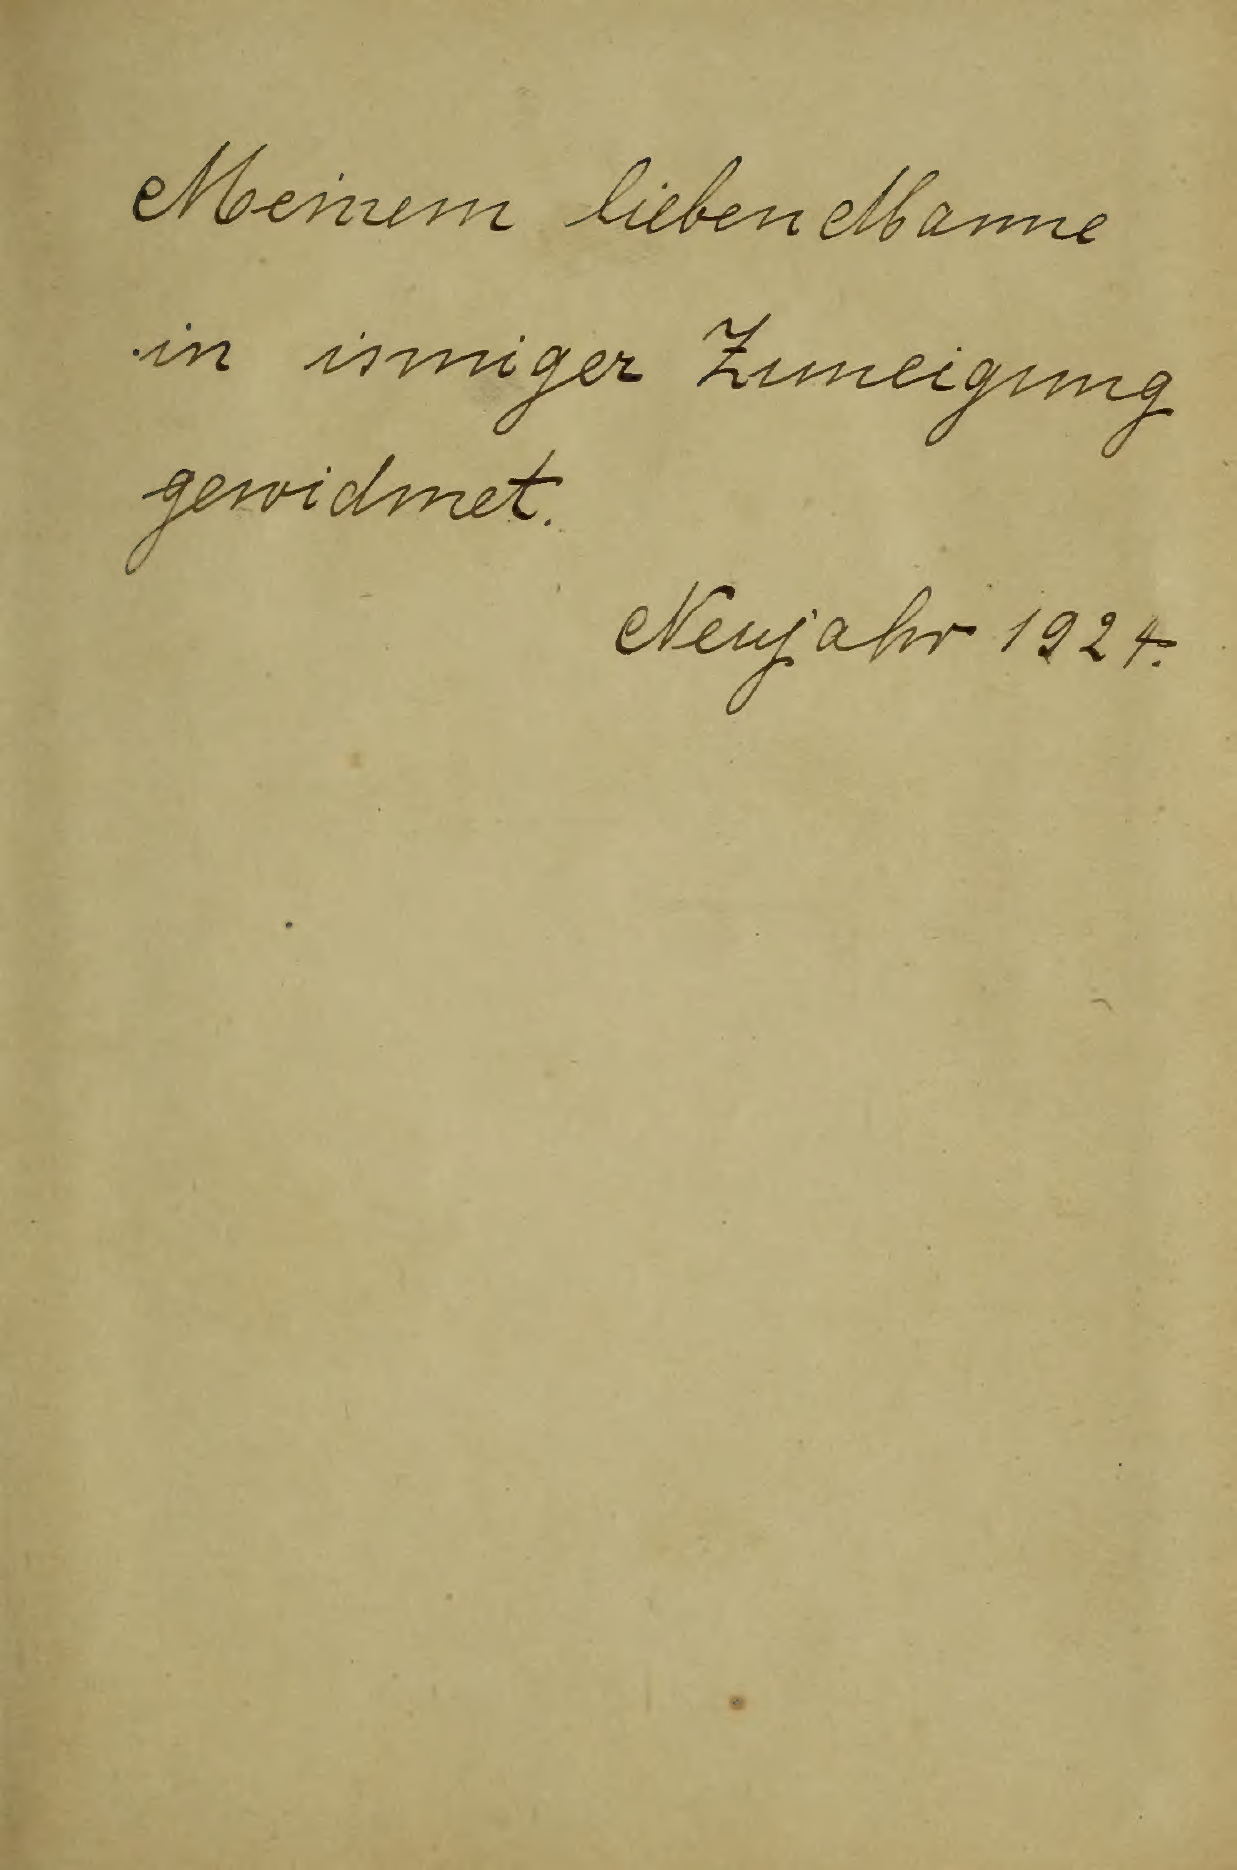 Meinem lieben Manne
in inniger Zuneigung
gewidmet.
Neujahr 1924.